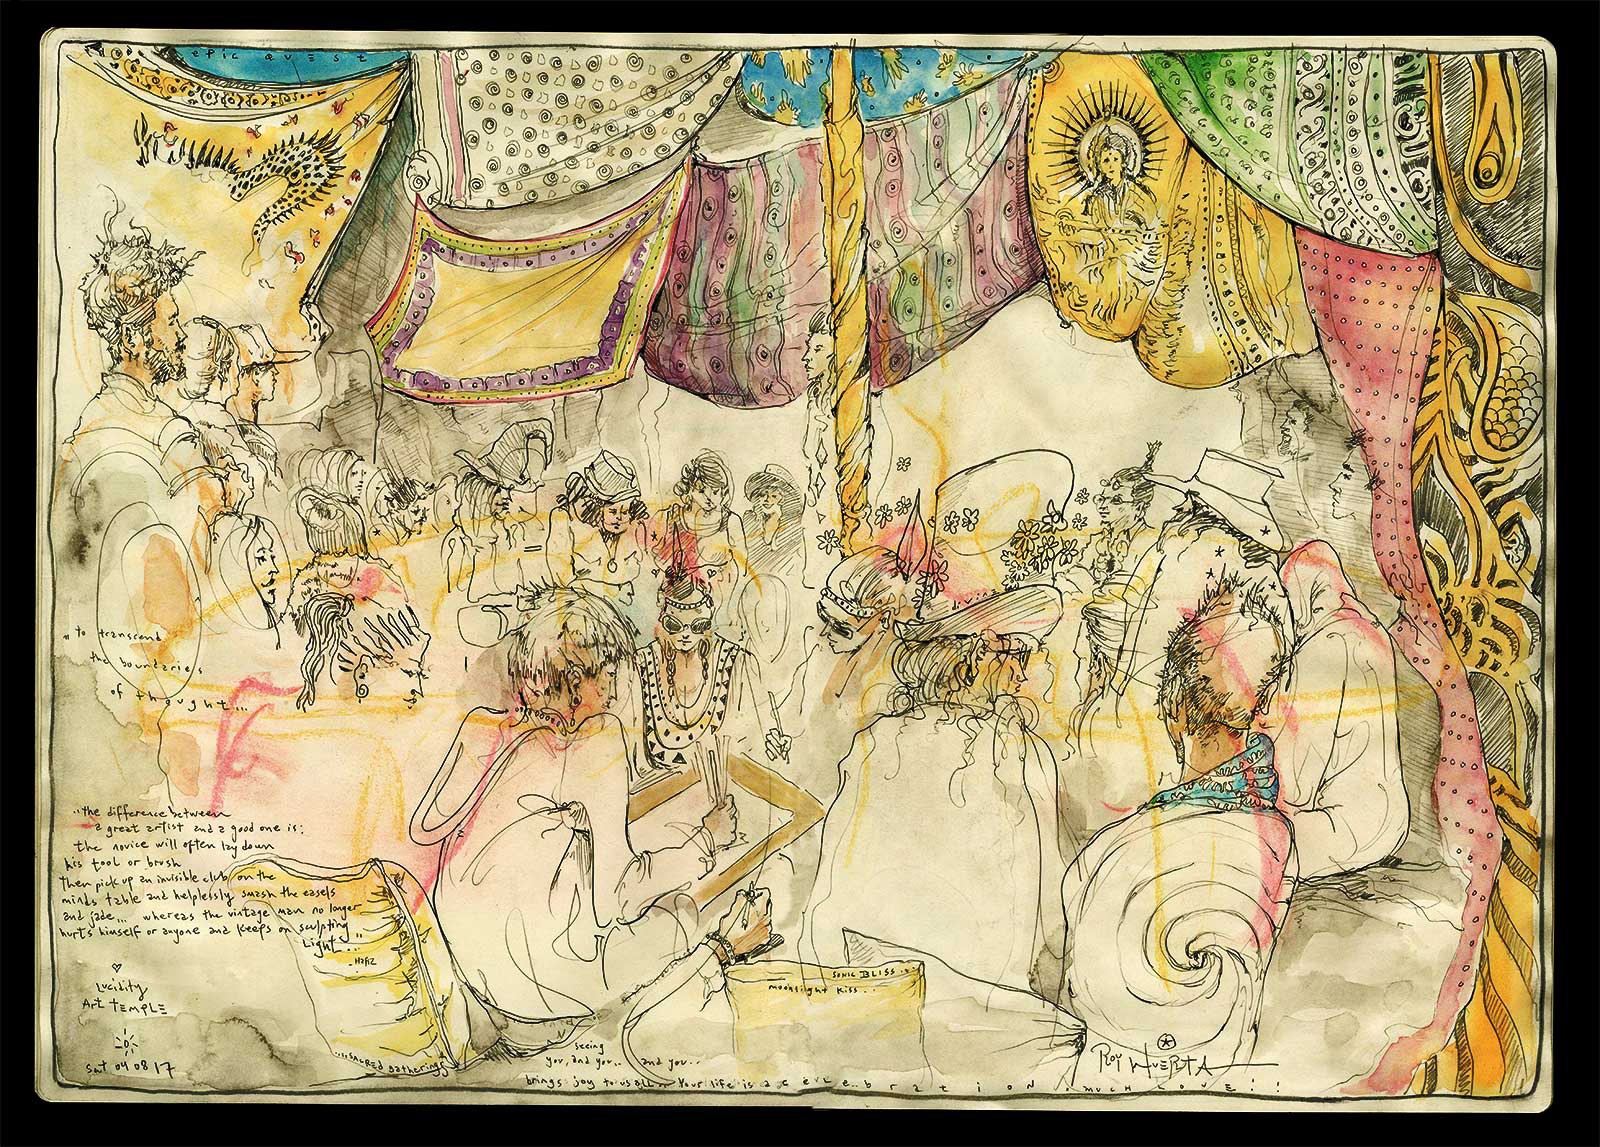 epic quest
divine
"to transcend
the boundaries
of thought...
"the difference between
a great artist and a good one is:
the novice will often lay down
his tool or brush
then pick up an invisible club on the
minds table and helplessly smash the easels
and jade... whereas the vintage man no longer
hurts himself or anyone and keeps on sculpting
Light...."
- Hafiz
Lucidity
Art TEMPLE
Sat 04 08 17
....SACRED gatherings
SONIC BLISS....
moonlight kiss...
seeing
you, and you.. and you...
brings joy to us all.. Your life is a celebration .much Love!!
Roy HUERTA